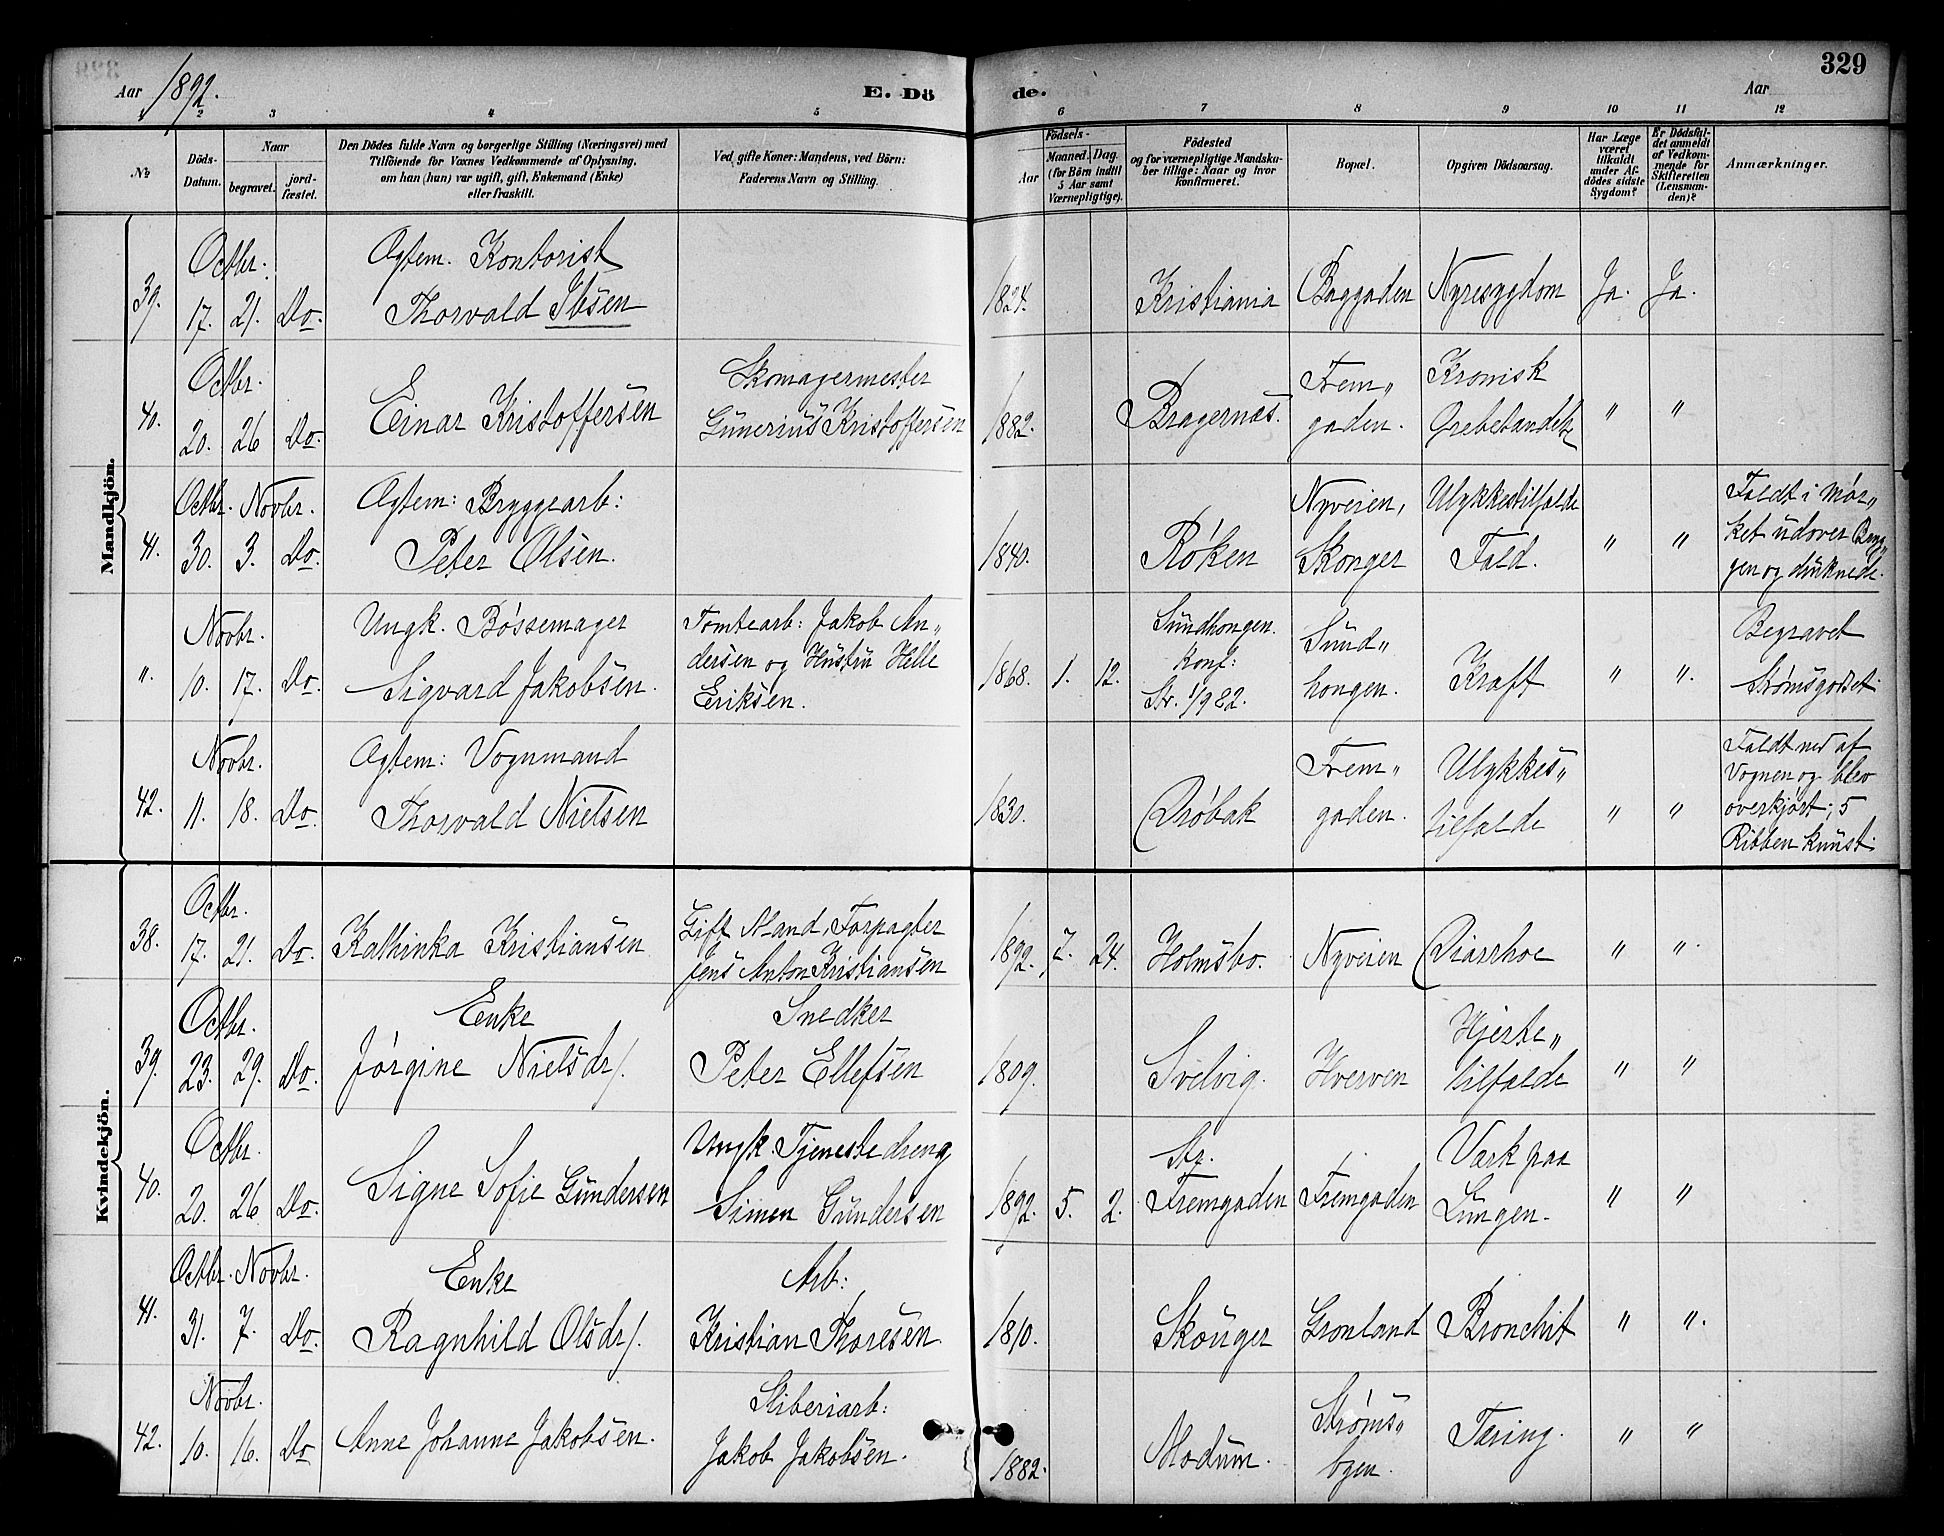 329
Aar 1892.
E. Dö de.
Aar
2 3 4 5 6 7 8 9 10 11 12
№
Döds-Datum.
Naar
begravet.
jord-fæstet.
Den Dödes fulde Navn og borgerlige Stilling (Næringsvei) med
Tilföiende for Voxnes Vedkommende af Oplysning,
om han (hun) var ugift, gift, Enkemand (Enke)
eller fraskilt.
Ved gifte Koner: Mandens, ved Börn:
Faderens Navn og Stilling.
Födsels-
Aar
Maaned. Dag.
(for Börn indtil
5 Aar samt
Værnepligtige).
Födested
og for værnepligtige Mandsku-
ber tillige: Naar og hvor
konfirmeret.
Bopæl.
Opgiven Dödsaarsag.
Har Læge
været
tilkaldt
under Af-
dödes sidste
Sygdom?
Er Dödsfal-
det anmeldt
af Vedkom-
mende for
Skifteretten
(Lensman-
den)?
Anmærkninger.
Mandkjön.
39. Octbr. 17. 21. Do.
Ægtem. Kontorist
Thorvald Ibsen
1824. Kristiania Baggaden Nyresygdom Ja. Ja.
40. Octbr. 20. 26 Do.
Einar Kristoffersen
Skomagermester
Gunerius Kristoffersen
1882. Bragernæs.
Frem„
gaden.
Kronisk
" "
41. Octbr. 30. Novbr. 3. Do.
Ægtem: Bryggearb:
Peter Olsen.
1840. Røken
Nyveien,
Skonger
Ulykkestilfælde
Fald.
" "
Faldt i Mør„
ket udover Bryg„
gen og druknede.
". Novbr. 10. 17. Do.
Ungk. Bøssemager
Sigvard Jakobsen.
Tomtearb: Jakob An„
dersen og Hustru Helle
Eriksen.
1868. 1. 12.
Sundhongen.
Konf:
Str. 1/9 82.
Sund„
hongen.
Kræft
" ".
Begravet
Strømsgodset.
42. Novbr. 11. 18. Do.
Ægtem: Vognmand
Thorvald Nielsen
1830. Drøbak
Frem„
gaden.
Ulykkes„
tilfælde
" "
Faldt ned af
Vognen og blev
overkjørt; 5
Ribben knust.
Kvindekjön.
38. Octbr. 17. 21. Do.
Kathinka Kristiansen
Gift Mand, Forpagter
Jens Anton Kristiansen
1892. 7. 24. Holmsbo. Nyveien Diarrhoe " ".
39. Octbr. 23. 29. Do.
Enke
Jørgine Nielsdr/.
Snedker
Peter Ellefsen
1809. Svelvig. Hverven
Hjerte„
tilfælde
" "
40. Octbr. 20. 26 Do.
Signe Sofie Gundersen
Ungk. Tjenestedreng
Simen Gundersen
1892. 5. 2.
Str.
Fremgaden Fremgaden
Værk paa
Lungen.
" "
41. Octbr. 31. Novbr. 7. Do.
Enke
Ragnhild Olsdr/.
Arb:
Kristian Thoresen
1810. Skouger Grønland Bronchit " ".
42. Novbr. 10. 16. Do
Anne Johanne Jakobsen.
Sliberiarb:
Jakob Jakobsen.
1882. Modum.
Strøms„
byen.
Tæring. " "